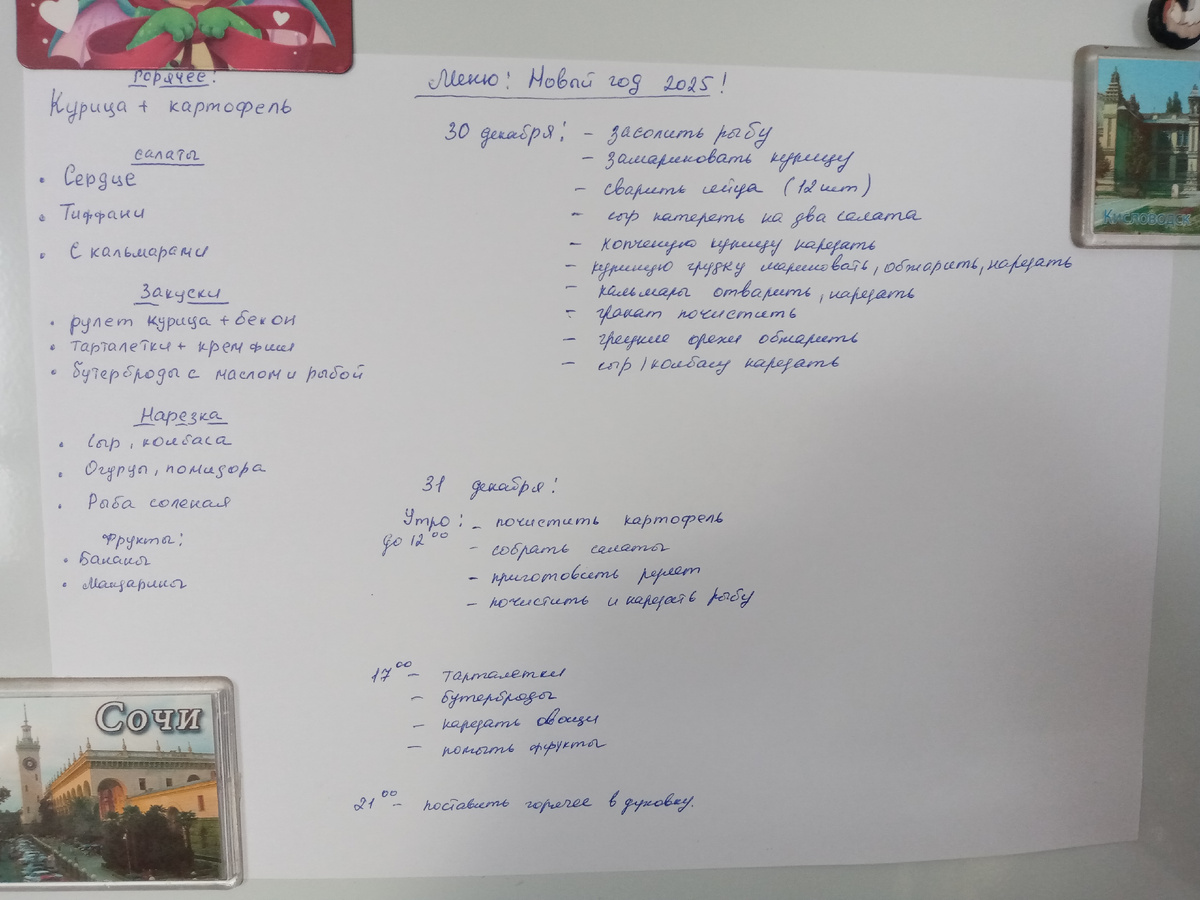 Горячее!
Курица + картофель
салаты
• Сердце
• Тиффани
• С кальмарами
Закуски
• рулет курица + бекон
• тарталетки + крем фиш
• бутерброды с маслом и рыбой
Нарезка
• Сыр, колбаса
• Огурцы, помидора
• Рыба соленая
Фрукты:
• Бананы
• Мандарины
Меню! Новый год 2025!
30 декабря! – засолить рыбу
– замариновать курицу
– сварить яйца (12 шт)
– сыр натереть на два салата
– копченую курицу нарезать
– куриную грудку мариновать, обжарить, нарезать
– кальмары отварить, нарезать
– гранат почистить
– грецкие орехи обжарить
– сыр / колбасу нарезать
31 декабря!
Утро: – почистить картофель
до 12 00
– собрать салаты
– приготовить рулет
– почистить и нарезать рыбу
17 00 – тарталетки
– бутерброды
– нарезать овощи
– помыть фрукты
21 00 – поставить горячее в духовку.
Кисловодск
Сочи